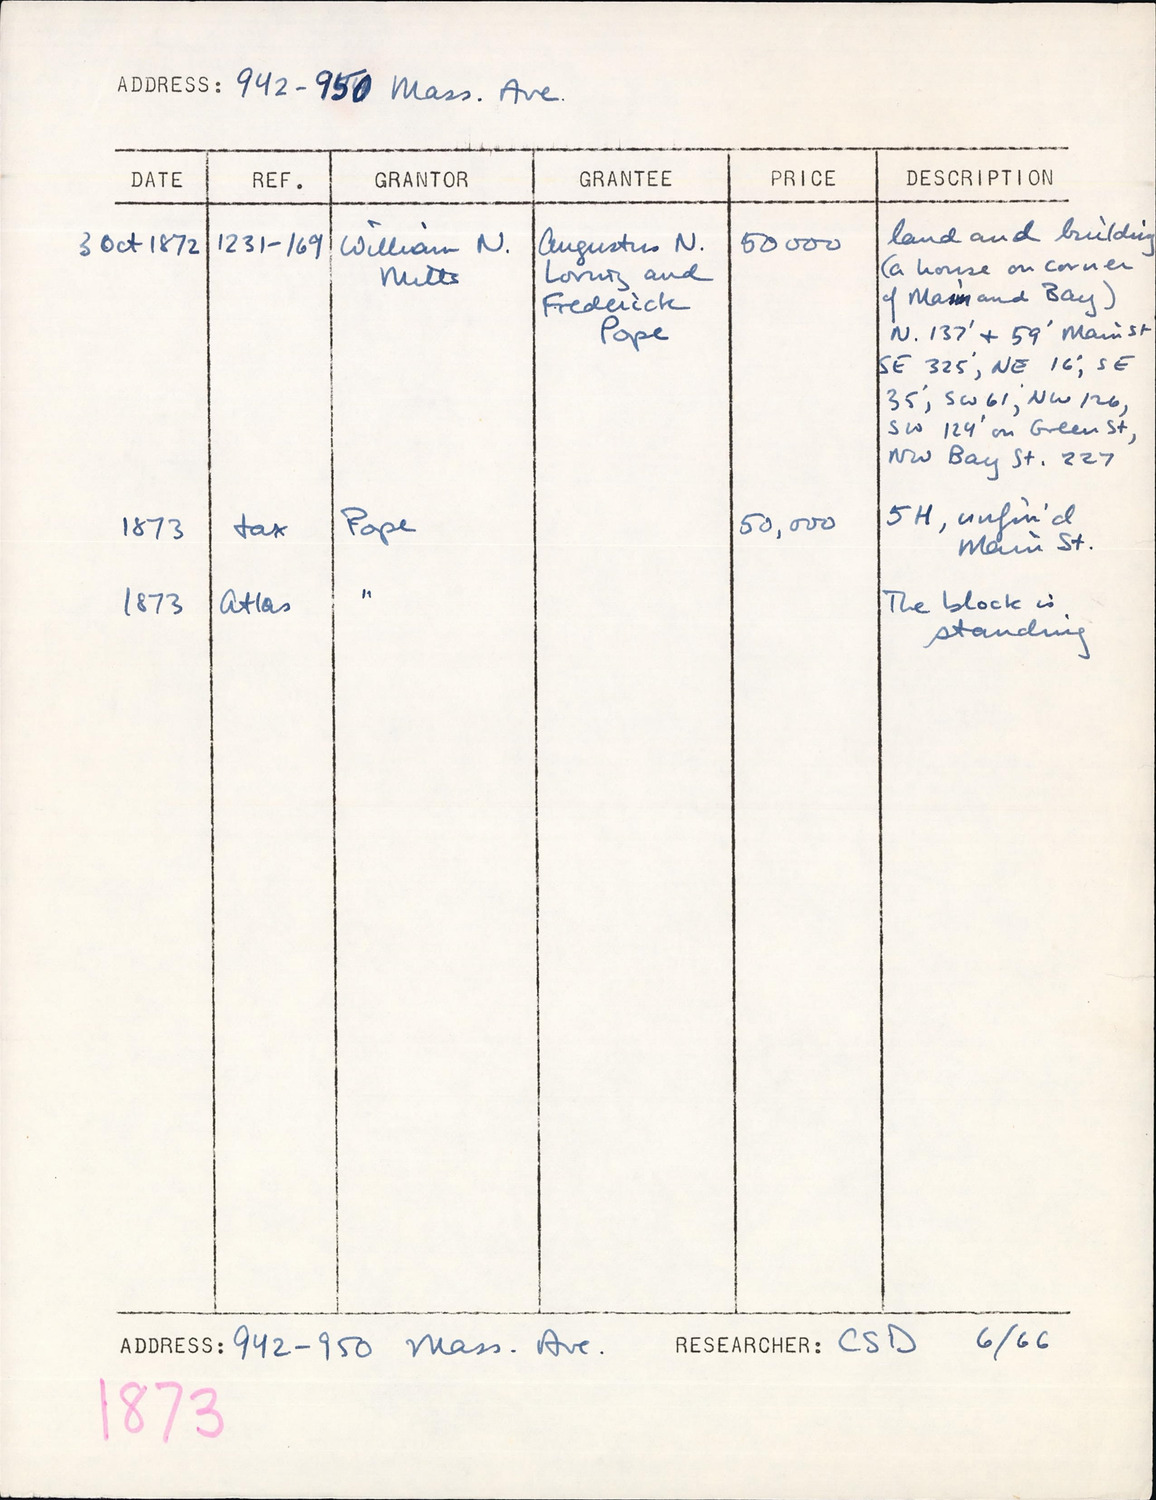 ADDRESS: 942-950 Mass. Ave.
DATE REF. GRANTOR GRANTEE PRICE DESCRIPTION
3 Oct 1872 1231-169 William N. Augustus N. 50000 land and building
Mills and (a house on corner
Frederick of Main and Bay)
Pope N. 137' + 59' Main St
SE 325', NE 16', SE
35', SW 61', NW 126,
SW 129' on Green St,
NW Bay St. 227
1873 tax Pope 50,000 5H, unfin'd
Main St.
1873 Atlas " The block is
standing
ADDRESS: 942-950 Mass. Ave. RESEARCHER: CSD 6/66
1873